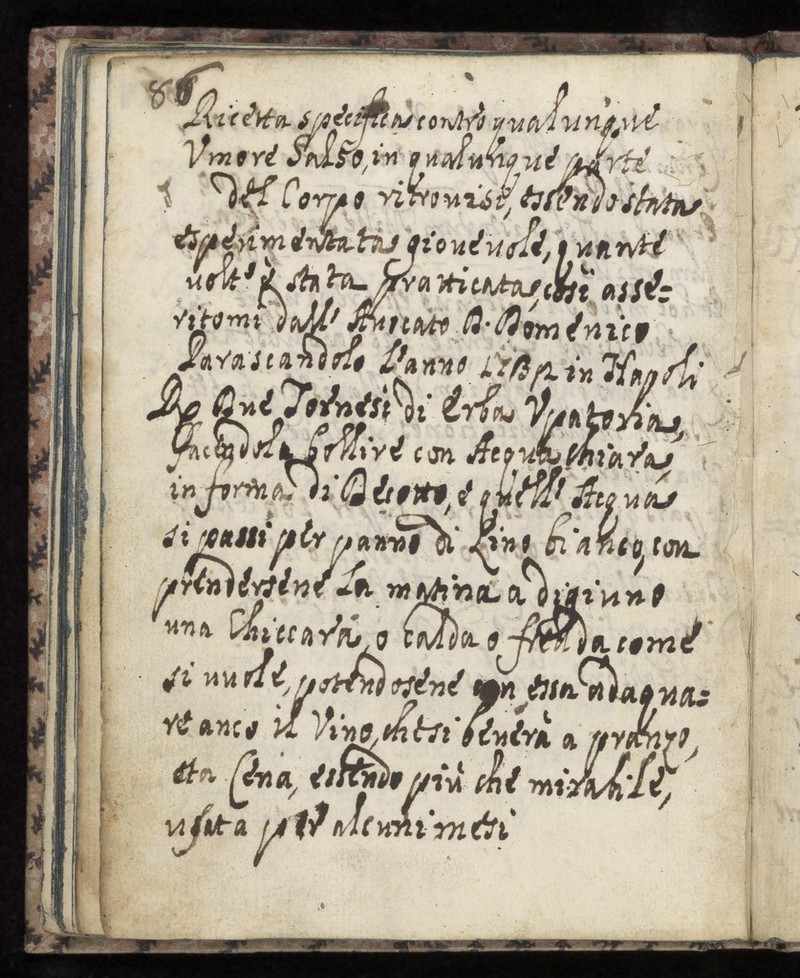 86
Ricetta specifica contro qualunque
Vmore Salso, in qualunque parte
del Corpo ritrouisi, essendo stata
esperimentata gioueuole, quante
uolte è stata pratticata, così asse=
ritomi dall' Auocato D. Domenico
Parascandolo l'anno in Napoli
Due Tornesi di Erba Vpatoria,
facendola bollire con Acqua chiara,
in forma di Decotto, e quell' Acqua
si passi per panno di Lino bianco, con
prendersene la matina a digiuno
una Chiccara, o calda o fredda come
si uuole, potendosene con essa adaqua=
re anco il Vino, che si beuerà a pranzo,
et a Cena, essendo più che mirabile,
usata per alcuni mesi